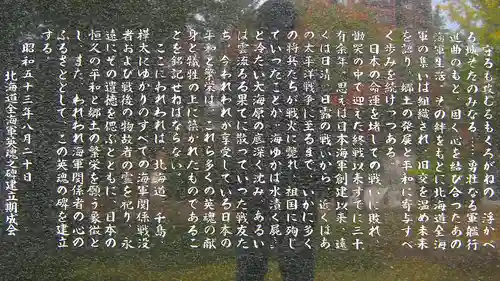 守るも攻むるもくろがねの 浮かべ
る城ぞたのみなる……勇壮なる軍艦行
進曲のもと 固く心を結び合ったあの
海軍生活 その絆をもとに北海道全海
軍の集いは組織され 旧交を温め未来
を語り 郷土の発展と平和に寄与すべ
く歩みを続けつつある。
日本の命運を堵しての戦いに敗れ
慟哭の中で迎えた終戦以来すでに三十
有余年、思えば日本海軍創建以来、遠
くは日清、日露の戦いから、近くはあ
の太平洋戦争に至るまで、いかに多く
の将兵たちが戦火に斃れて、祖国に殉じ
ていったことか。海ゆかば水漬く屍…
と冷たい大海原の底深く沈み、あるい
は雲流るる果てに散っていった戦友た
ち、今われわれが享受している日本の
平和と繁栄は、これら多くの英魂の献
身と犠牲の上に築かれたものであるこ
とを銘記せねばならない。
ここにわれわれは、北海道、千島、
樺太にゆかりのすべての海軍関係戦没
者および戦後の物故者の霊を祀り、永
遠にその遺徳を偲ぶとともに、日本の
恒久の平和と郷土の繁栄を願う象徴と
し、また、われわれ海軍関係者の心の
ふるさととして、この英魂の碑を建立
する。
昭和五十三年八月二十日
北海道全海軍英魂之碑建立期成会